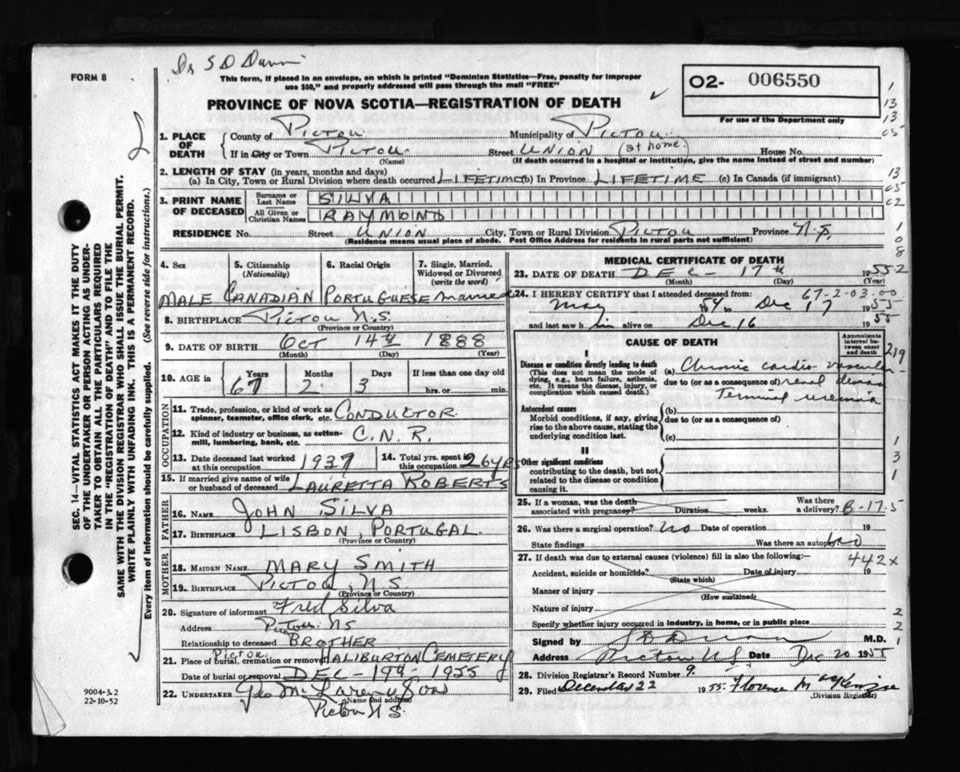 Dr S D Dunn
FORM 8
This form, if placed in an envelope, on which is printed "Dominion Statistics—Free, penalty for improper
use $50," and properly addressed will pass through the mail "FREE"
02- 006550
For use of the Department only
PROVINCE OF NOVA SCOTIA—REGISTRATION OF DEATH
1. PLACE OF DEATH
County of Pictou Municipality of Pictou
If in City or Town Pictou (Name) Street UNION (at home) House No.
(If death occurred in a hospital or institution, give the name instead of street and number)
2. LENGTH OF STAY (in years, months and days)
(a) In City, Town or Rural Division where death occurred LIFETIME (b) In Province LIFETIME (c) In Canada (if immigrant)
3. PRINT NAME OF DECEASED
Surname or Last Name SILVA
All Given or Christian Names RAYMOND
RESIDENCE No. Street UNION City, Town or Rural Division Pictou Province N.S.
(Residence means usual place of abode. Post Office Address for residents in rural parts not sufficient)
4. Sex MALE
5. Citizenship (Nationality) CANADIAN
6. Racial Origin PORTUGUESE
7. Single, Married, Widowed or Divorced (write the word) married
8. BIRTHPLACE Pictou N.S.
(Province or Country)
9. DATE OF BIRTH Oct 14th 1888
(Month) (Day) (Year)
10. AGE in 67 2 3 If less than one day old
years months days hrs. or min.
OCCUPATION
11. Trade, profession, or kind of work as spinner, teamster, office clerk, etc. CONDUCTOR
12. Kind of industry or business, as cotton-mill, lumbering, bank, etc. C.N.R.
13. Date deceased last worked at this occupation 1937
14. Total yrs. spent in this occupation 26 yrs
15. If married give name of wife or husband of deceased LAURETTA ROBERTS
FATHER
16. NAME JOHN SILVA
17. BIRTHPLACE LISBON PORTUGAL
(Province or Country)
MOTHER
18. MAIDEN NAME MARY SMITH
19. BIRTHPLACE PICTOU, N.S.
(Province or Country)
20. Signature of informant Fred Silva
Address Pictou NS
Relationship to deceased BROTHER
21. Place of burial, cremation or removal Pictou HALIBURTON CEMETERY
Date of burial or removal DEC- 19th- 1955
22. UNDERTAKER Geo McLaren & Son
(Name and address)
Pictou N S.
9004-3.2
22-10-52
MEDICAL CERTIFICATE OF DEATH
23. DATE OF DEATH DEC- 17th 1955
(Month) (Day) (Year)
24. I HEREBY CERTIFY that I attended deceased from: 67-2-03-00
May 54 to Dec 17 1955
and last saw him alive on Dec 16 1955
CAUSE OF DEATH
Approximate interval between onset and death
I
Disease or condition directly leading to death
(This does not mean the mode of dying, e.g., heart failure, asthenia, etc. It means the disease, injury, or complication which caused death.)
(a) Chronic cardio-vascular-
due to (or as a consequence of) renal disease
Terminal uremia
Antecedent causes
Morbid conditions, if any, giving rise to the above cause, stating the underlying condition last.
(b)
due to (or as a consequence of)
(c)
II
Other significant conditions
contributing to the death, but not related to the disease or condition causing it.
25. If a woman, was the death associated with pregnancy? Duration weeks. Was there a delivery? B-17.5
26. Was there a surgical operation? no Date of operation 19
State findings Was there an autopsy? no
27. If death was due to external causes (violence) fill in also the following:— 442x
Accident, suicide or homicide? Date of injury 19
(State which)
Manner of injury
(How sustained)
Nature of injury
Specify whether injury occurred in industry, in home, or in public place
Signed by S D Dunn M.D.
Address Pictou N.S. Date Dec 20 1955
28. Division Registrar's Record Number 9.
29. Filed December 22 1955 Florence MacKenzie
(Division Registrar)
SEC. 14—VITAL STATISTICS ACT MAKES IT THE DUTY
OF THE UNDERTAKER OR PERSON ACTING AS UNDER-
TAKER TO OBTAIN ALL THE PARTICULARS REQUIRED
IN THE "REGISTRATION OF DEATH" AND TO FILE THE
SAME WITH THE DIVISION REGISTRAR WHO SHALL ISSUE THE BURIAL PERMIT.
WRITE PLAINLY WITH UNFADING INK. THIS IS A PERMANENT RECORD.
Every item of information should be carefully supplied. (See reverse side for instructions.)
1
13
13
05
13
05
02
1
0
8
2
219
1
3
1
2
2
1